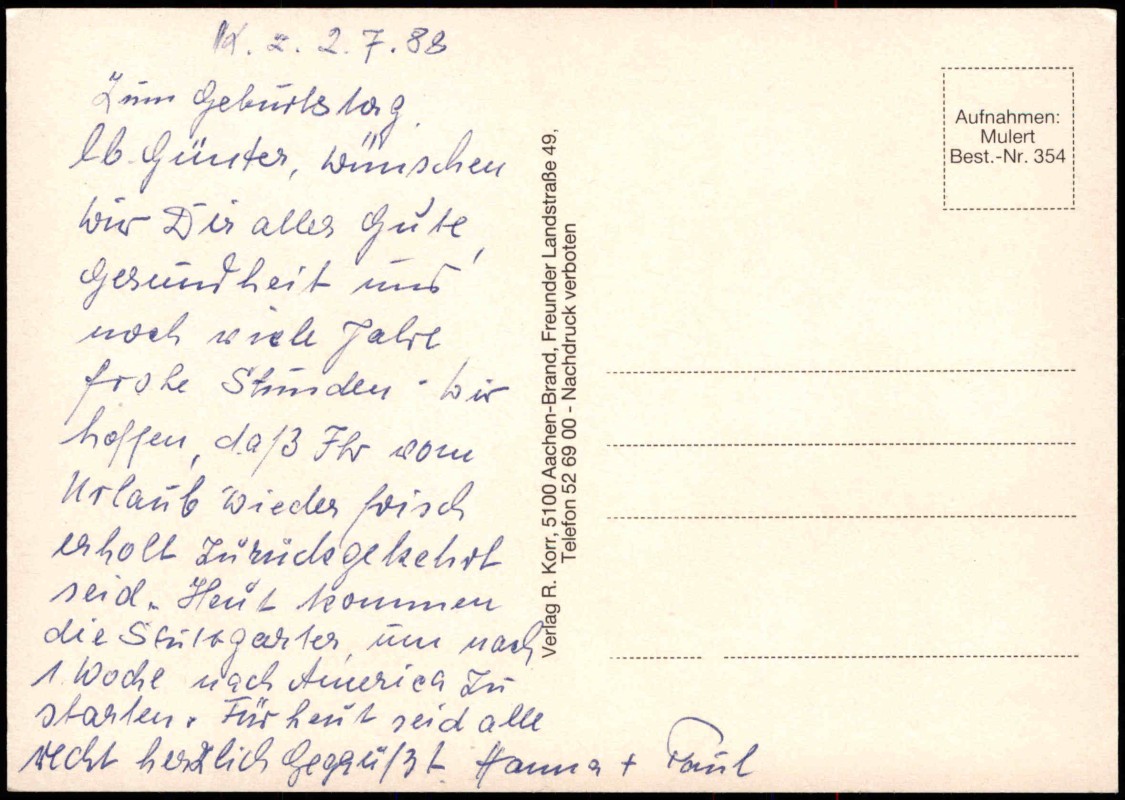 z. 2.7.88
Zum Geburtstag
lb. Günter, wünschen
wir Dir alles Gute,
Gesundheit und
noch viele Jahre
frohe Stunden. Wir
hoffen, daß Ihr vom
Urlaub wieder frisch
erholt zurückgekehrt
seid. Heut kommen
die Stuttgarter, um nach
1 Woche nach America zu
starten. Für heut seid alle
recht herzlich Gegrüßt Hanna + Paul
Verlag R. Korr, 5100 Aachen-Brand, Freunder Landstraße 49,
Telefon 52 69 00 - Nachdruck verboten
Aufnahmen:
Mulert
Best.-Nr. 354